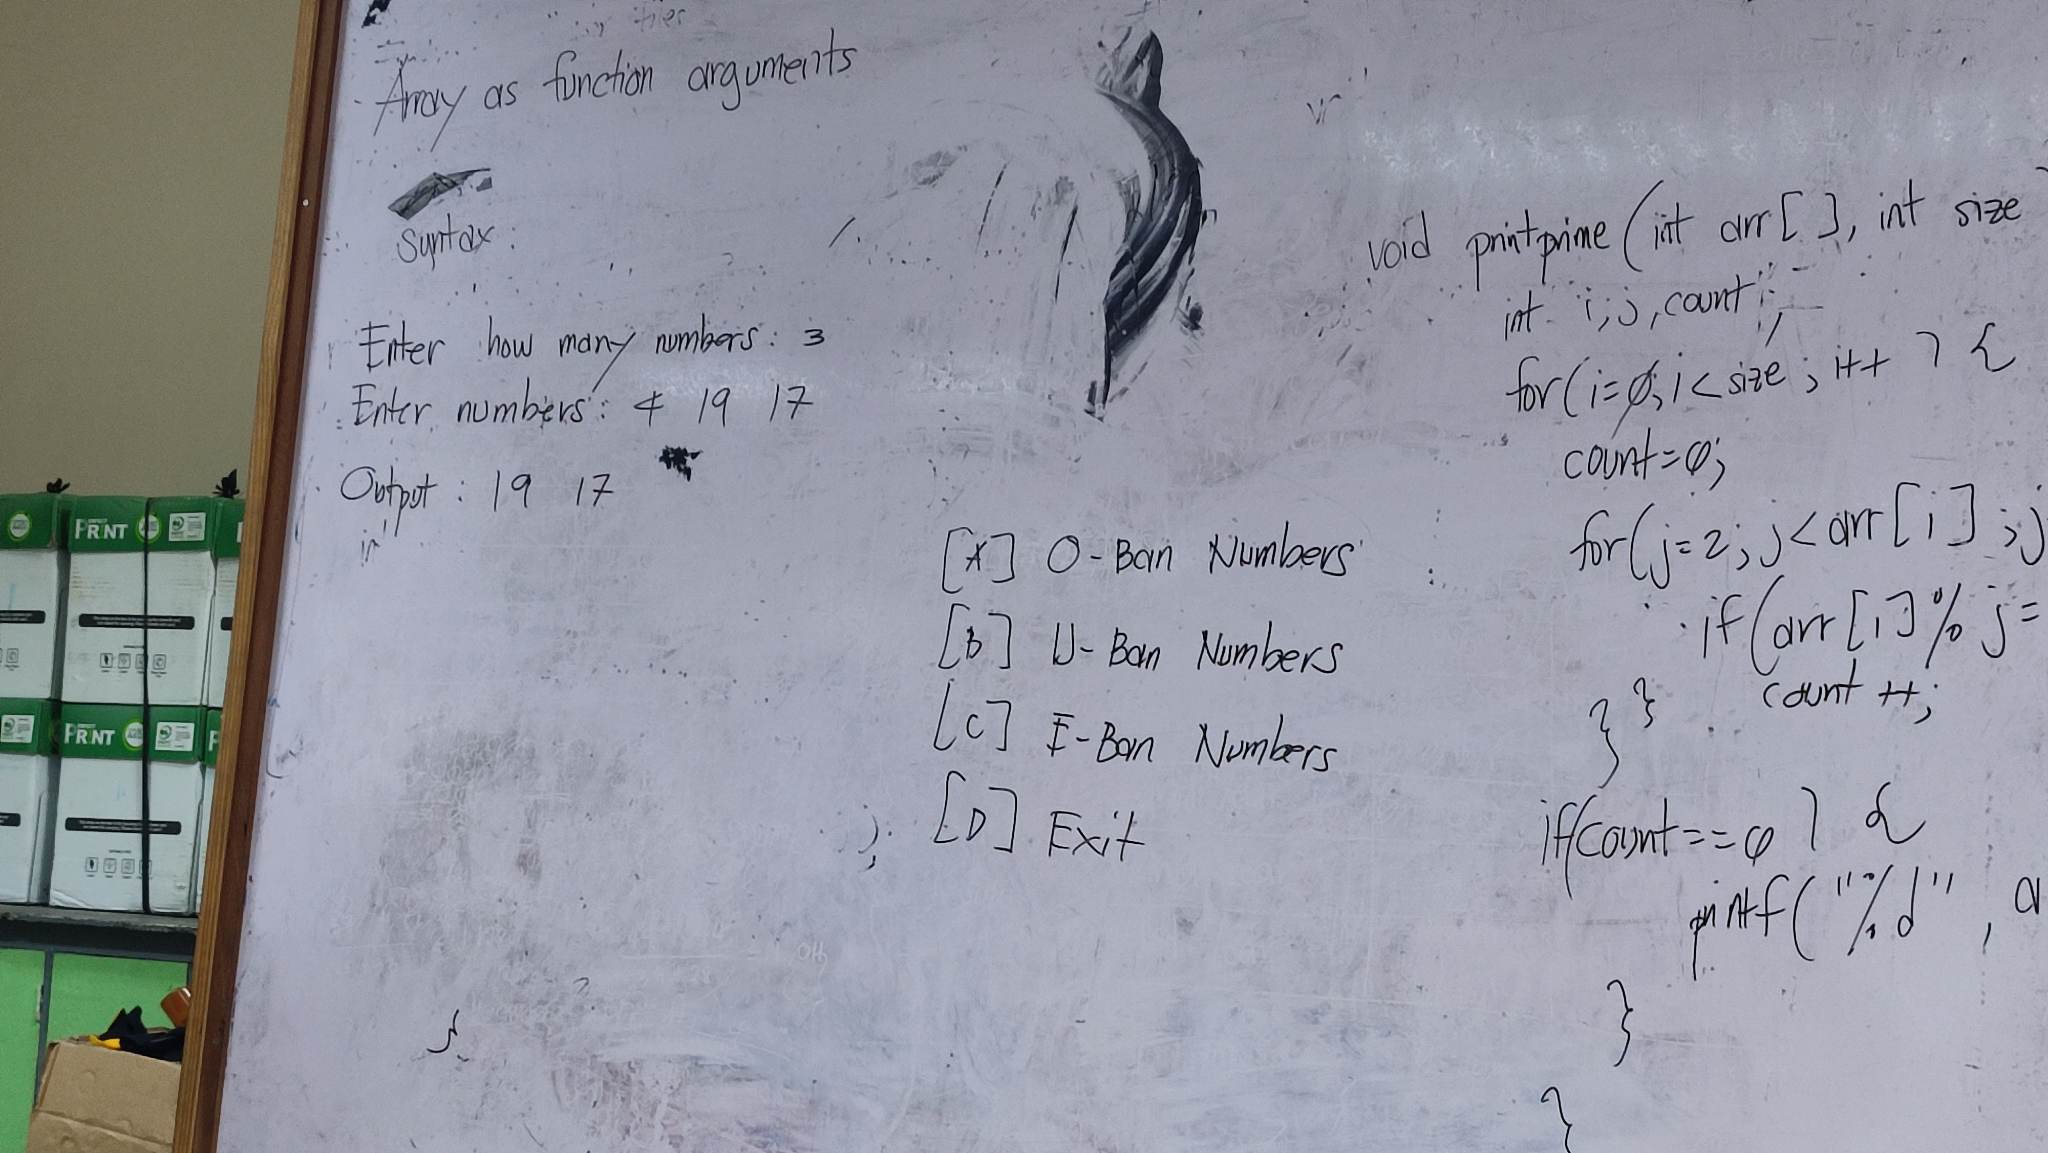 Array as function arguments
Syntax:
Enter how many numbers: 3
Enter numbers: 4 19 17
Output: 19 17
[A] O-Ban Numbers
[B] U-Ban Numbers
[C] E-Ban Numbers
[D] Exit
void printprime (int arr[], int size
int i, j, count;
for(i=0; i<size; i++ ) {
count=0;
for(j=2; j<arr[i] ; j
if(arr[i] % j=
count ++;
} }
if(count==0 ) {
printf("%d" , a
}
}
PRINT
PRINT